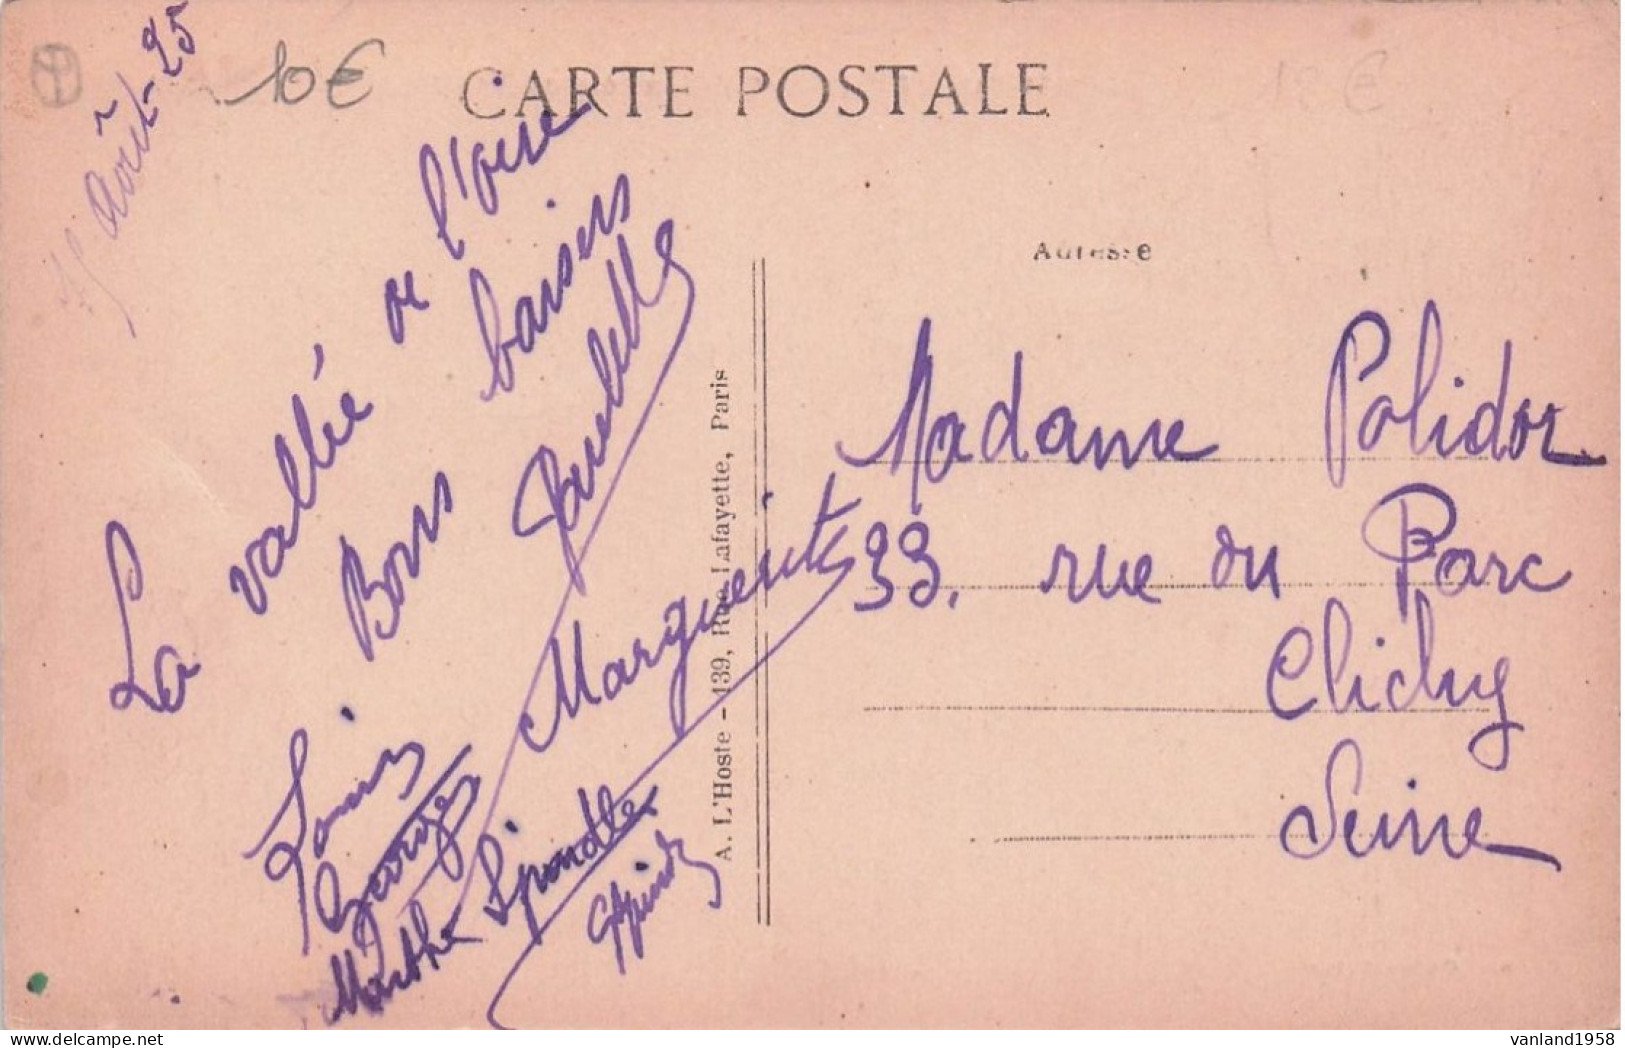 10€
CARTE POSTALE
18€
Août-25
Adresse
La vallée de l'oise
Bons baisers
Marguerite
Louis
Georges
Marthe Spindler
GSpindler
A. L'Hoste - 139, Rue Lafayette, Paris
Madame Polidor
33, rue du Parc
Clichy
Seine
delcampe.net
vanland1958